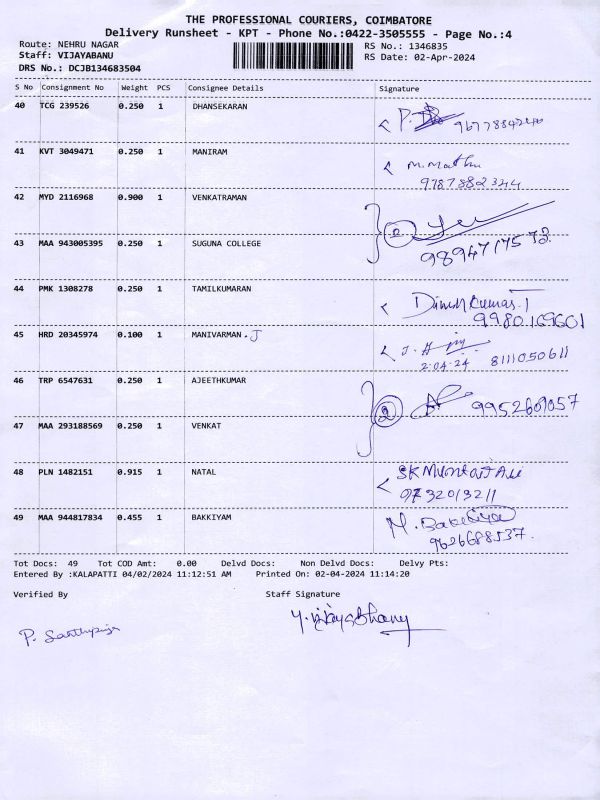 THE PROFESSIONAL COURIERS, COIMBATORE
Delivery Runsheet - KPT - Phone No.:0422-3505555 - Page No.:4
Route: NEHRU NAGAR RS No.: 1346835
Staff: VIJAYABANU RS Date: 02-Apr-2024
DRS No.: DCJB134683504
S No Consignment No Weight PCS Consignee Details Signature
40 TCG 239526 0.250 1 DHANSEKARAN
41 KVT 3049471 0.250 1 MANIRAM
M. Mathu
9787882344
42 MYD 2116968 0.900 1 VENKATRAMAN
2
43 MAA 943005395 0.250 1 SUGUNA COLLEGE
9894717573
44 PMK 1308278 0.250 1 TAMILKUMARAN
Dinesh Kumar. T
9980169601
45 HRD 20345974 0.100 1 MANIVARMAN . J
2.04.24 8111050611
46 TRP 6547631 0.250 1 AJEETHKUMAR
2 9952601057
47 MAA 293188569 0.250 1 VENKAT
48 PLN 1482151 0.915 1 NATAL
SK Muntaj Ali
9732013211
49 MAA 944817834 0.455 1 BAKKIYAM
9626688537.
Tot Docs: 49 Tot COD Amt: 0.00 Delvd Docs: Non Delvd Docs: Delvy Pts:
Entered By :KALAPATTI 04/02/2024 11:12:51 AM Printed On: 02-04-2024 11:14:20
Verified By Staff Signature
Y. Vijaya Bhanu